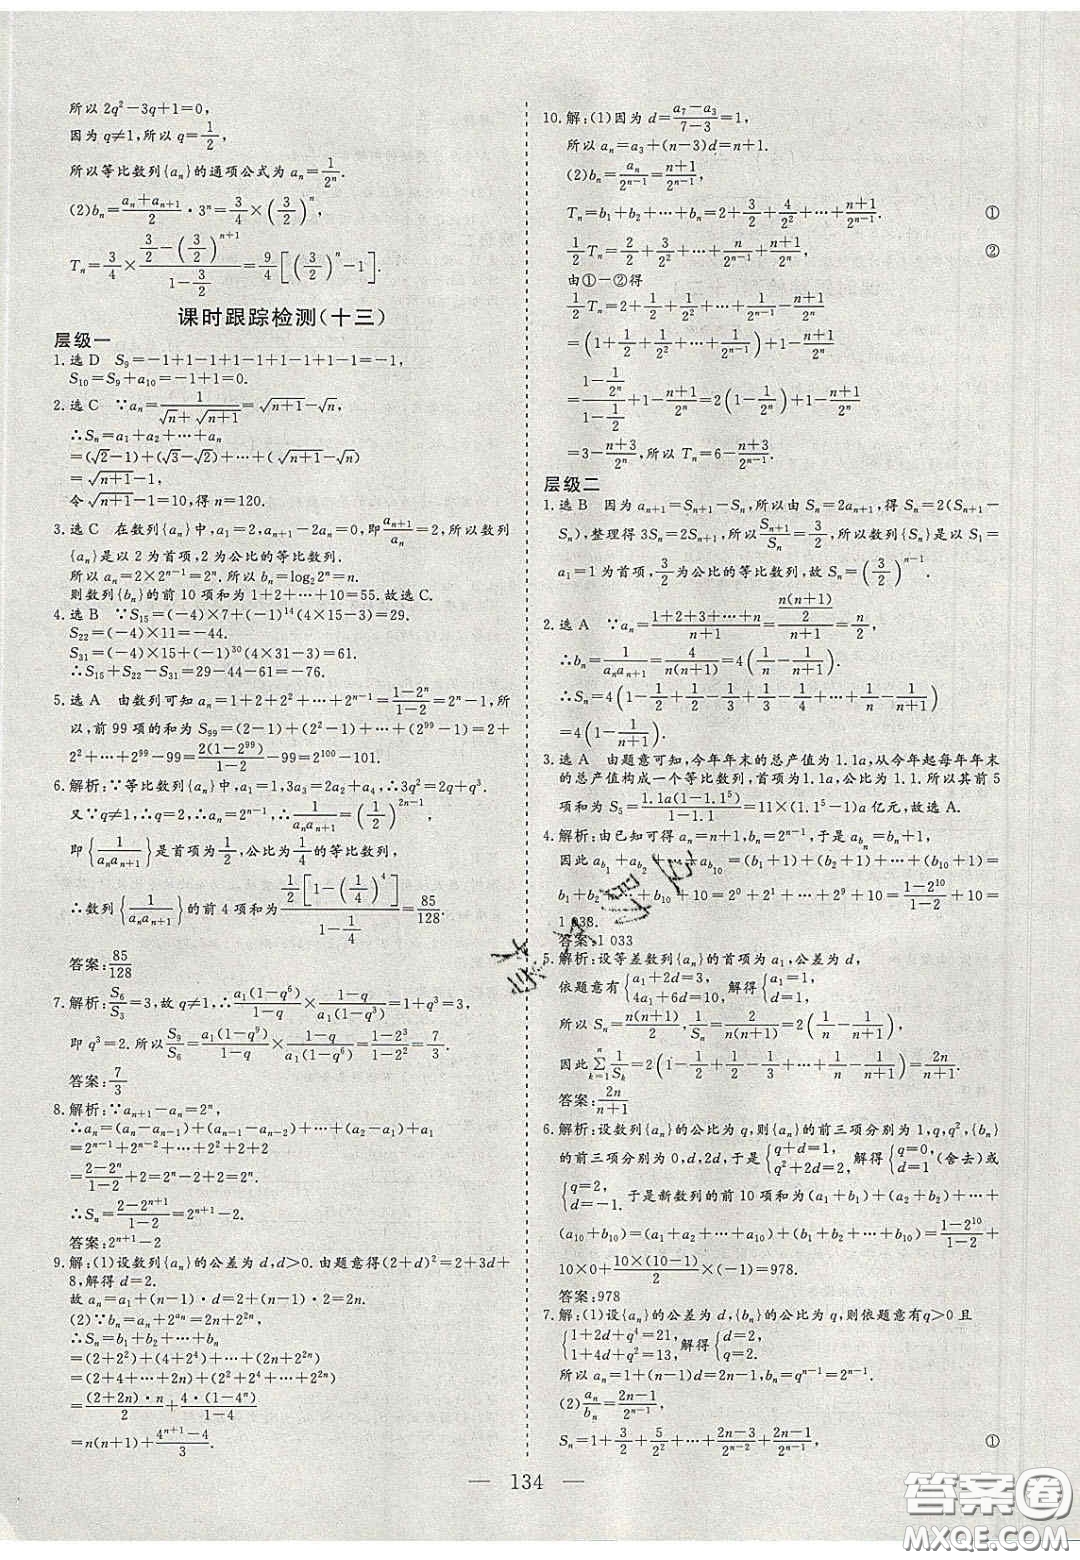 所以 2q²-3q+1=0,
因为 q≠1,所以 q=1/2,
所以等比数列{aₙ}的通项公式为 aₙ=1/2ⁿ.
(2)bₙ=(aₙ+aₙ₊₁)/2·3ⁿ=3/4×(3/2)ⁿ,
Tₙ=3/4×(3/2-(3/2)ⁿ⁺¹)/(1-3/2)=9/4[(3/2)ⁿ-1].
课时跟踪检测(十三)
层级一
1.选 D S₉=-1+1-1+1-1+1-1+1-1=-1,
S₁₀=S₉+a₁₀=-1+1=0.
2.选 C ∵aₙ=1/(√n+√(n+1))=√(n+1)-√n,
∴Sₙ=a₁+a₂+…+aₙ
=(√2-1)+(√3-√2)+…+(√(n+1)-√n)
=√(n+1)-1,
令√(n+1)-1=10,得 n=120.
3.选 C 在数列{aₙ}中,a₁=2,aₙ₊₁-2aₙ=0,即aₙ₊₁/aₙ=2,所以数列
{aₙ}是以 2 为首项,2 为公比的等比数列.
所以 aₙ=2×2ⁿ⁻¹=2ⁿ.所以 bₙ=log₂2ⁿ=n.
则数列{bₙ}的前 10 项和为 1+2+…+10=55.故选 C.
4.选 B ∵S₁₅=(-4)×7+(-1)¹⁴(4×15-3)=29.
S₂₂=(-4)×11=-44.
S₃₁=(-4)×15+(-1)³⁰(4×31-3)=61.
∴S₁₅+S₂₂-S₃₁=29-44-61=-76.
5.选 A 由数列可知 aₙ=1+2+2²+…+2ⁿ⁻¹=(1-2ⁿ)/(1-2)=2ⁿ-1,所
以,前 99 项的和为 S₉₉=(2-1)+(2²-1)+…+(2⁹⁹-1)=2+
2²+…+2⁹⁹-99=2(1-2⁹⁹)/(1-2)-99=2¹⁰⁰-101.
6.解析:∵等比数列{aₙ}中,a₁=1,3a₃=2a₂+a₄,∴3q²=2q+q³.
又∵q≠1,∴q=2,∴aₙ=2ⁿ⁻¹,∴1/(aₙaₙ₊₁)=(1/2)²ⁿ⁻¹,
即{1/(aₙaₙ₊₁)}是首项为1/2,公比为1/4的等比数列,
∴数列{1/(aₙaₙ₊₁)}的前 4 项和为(1/2[1-(1/4)⁴])/(1-1/4)=85/128.
答案:85/128
7.解析:S₆/S₃=3,故 q≠1,∴a₁(1-q⁶)/(1-q)×(1-q)/(a₁(1-q³))=1+q³=3,
即 q³=2.所以S₉/S₆=a₁(1-q⁹)/(1-q)×(1-q)/(a₁(1-q⁶))=(1-2³)/(1-2²)=7/3.
答案:7/3
8.解析:∵aₙ₊₁-aₙ=2ⁿ,
∴aₙ=(aₙ-aₙ₋₁)+(aₙ₋₁-aₙ₋₂)+…+(a₂-a₁)+a₁
=2ⁿ⁻¹+2ⁿ⁻²+…+2²+2+2
=(2-2ⁿ)/(1-2)+2=2ⁿ-2+2=2ⁿ,
∴Sₙ=(2-2ⁿ⁺¹)/(1-2)=2ⁿ⁺¹-2.
答案:2ⁿ⁺¹-2
9.解:(1)设数列{aₙ}的公差为 d,d>0.由题意得(2+d)²=2+3d+
8,解得 d=2.
故 aₙ=a₁+(n-1)·d=2+(n-1)·2=2n.
(2)∵bₙ=aₙ+2^(aₙ)=2n+2²ⁿ,
∴Sₙ=b₁+b₂+…+bₙ
=(2+2²)+(4+2⁴)+…+(2n+2²ⁿ)
=(2+4+…+2n)+(2²+2⁴+…+2²ⁿ)
=(2+2n)·n/2+4·(1-4ⁿ)/(1-4)
=n(n+1)+(4ⁿ⁺¹-4)/3.
10.解:(1)因为 d=(a₇-a₃)/(7-3)=1,
所以 aₙ=a₃+(n-3)d=n+1.
(2)bₙ=aₙ/2ⁿ⁻¹=(n+1)/2ⁿ⁻¹,
Tₙ=b₁+b₂+…+bₙ=2+3/2+4/2²+…+(n+1)/2ⁿ⁻¹. ①
1/2Tₙ=2/2+3/2²+…+n/2ⁿ⁻¹+(n+1)/2ⁿ, ②
由①-②得
1/2Tₙ=2+1/2+1/2²+…+1/2ⁿ⁻¹-(n+1)/2ⁿ
=(1+1/2+1/2²+…+1/2ⁿ⁻¹)+1-(n+1)/2ⁿ
=(1-1/2ⁿ)/(1-1/2)+1-(n+1)/2ⁿ=2(1-1/2ⁿ)+1-(n+1)/2ⁿ
=3-(n+3)/2ⁿ,所以 Tₙ=6-(n+3)/2ⁿ⁻¹.
层级二
1.选 B 因为 aₙ₊₁=Sₙ₊₁-Sₙ,所以由 Sₙ=2aₙ₊₁,得 Sₙ=2(Sₙ₊₁-
Sₙ),整理得 3Sₙ=2Sₙ₊₁,所以Sₙ₊₁/Sₙ=3/2,所以数列{Sₙ}是以 S₁=
a₁=1 为首项,3/2为公比的等比数列,故 Sₙ=(3/2)ⁿ⁻¹.
2.选 A ∵aₙ=(1+2+3+…+n)/(n+1)=(n(n+1)/2)/(n+1)=n/2,
∴bₙ=1/(aₙaₙ₊₁)=4/(n(n+1))=4(1/n-1/(n+1)),
∴Sₙ=4(1-1/2+1/2-1/3+…+1/n-1/(n+1))
=4(1-1/(n+1)).
3.选 A 由题意可知,今年年末的总产值为 1.1a,从今年起每年年末
的总产值构成一个等比数列,首项为 1.1a,公比为 1.1.所以其前 5
项和为 S₅=1.1a(1-1.1⁵)/(1-1.1)=11×(1.1⁵-1)a 亿元,故选 A.
4.解析:由已知可得 aₙ=n+1,bₙ=2ⁿ⁻¹,于是 a_bₙ=bₙ+1,
因此 a_b₁+a_b₂+…+a_b₁₀=(b₁+1)+(b₂+1)+…+(b₁₀+1)=
b₁+b₂+…+b₁₀+10=2⁰+2¹+…+2⁹+10=(1-2¹⁰)/(1-2)+10=
1 033.
答案:1 033
5.解析:设等差数列{aₙ}的首项为 a₁,公差为 d,
依题意有{a₁+2d=3, 4a₁+6d=10, 解得{a₁=1, d=1,
所以 Sₙ=n(n+1)/2,1/Sₙ=2/(n(n+1))=2(1/n-1/(n+1)),
因此∑ₖ₌₁ⁿ 1/Sₖ=2(1-1/2+1/2-1/3+…+1/n-1/(n+1))=2n/(n+1).
答案:2n/(n+1)
6.解析:设数列{aₙ}的公比为 q,则{aₙ}的前三项分别为 1,q,q²,{bₙ}
的前三项分别为 0,d,2d,于是{q+d=1, q²+2d=2, 解得{q=0, d=1(舍去)或
{q=2, d=-1. 于是新数列的前 10 项和为(a₁+b₁)+(a₂+b₂)+…+
(a₁₀+b₁₀)=(a₁+a₂+…+a₁₀)+(b₁+b₂+…+b₁₀)=(1-2¹⁰)/(1-2)+
10×0+10×(10-1)/2×(-1)=978.
答案:978
7.解:(1)设{aₙ}的公差为 d,{bₙ}的公比为 q,则依题意有q>0 且
{1+2d+q⁴=21, 1+4d+q²=13, 解得{d=2, q=2.
所以 aₙ=1+(n-1)d=2n-1,bₙ=qⁿ⁻¹=2ⁿ⁻¹.
(2)aₙ/bₙ=(2n-1)/2ⁿ⁻¹.
Sₙ=1+3/2+5/2²+…+(2n-3)/2ⁿ⁻²+(2n-1)/2ⁿ⁻¹, ①
134
答案圈
MXQE.COM